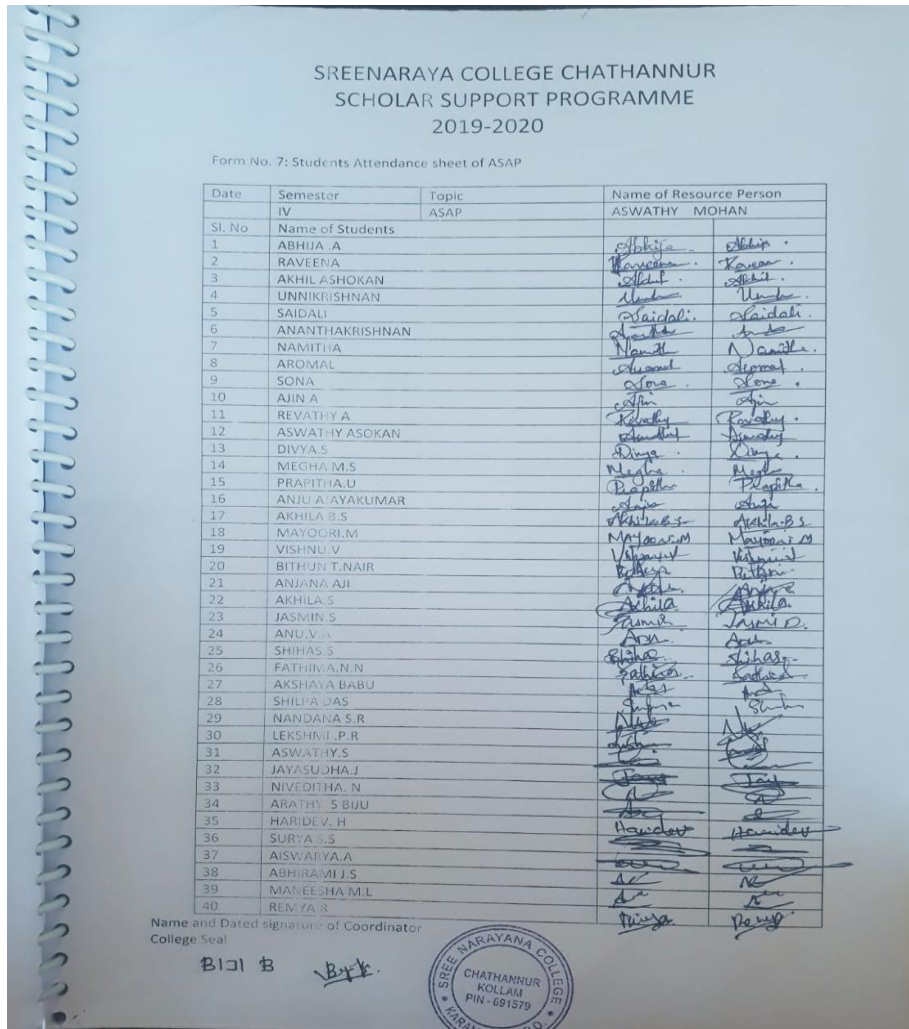 SREENARAYA COLLEGE CHATHANNUR
SCHOLAR SUPPORT PROGRAMME
2019-2020
Form No. 7: Students Attendance sheet of ASAP
Date Semester Topic Name of Resource Person
IV ASAP ASWATHY MOHAN
Sl. No Name of Students
1 ABHIJA .A Abhija Abhija .
2 RAVEENA Raveena . Raveen .
3 AKHIL ASHOKAN Akhil . Akhil .
4 UNNIKRISHNAN
5 SAIDALI Saidali. Saidali.
6 ANANTHAKRISHNAN
7 NAMITHA Namith Namitha.
8 AROMAL Aromal Aromal .
9 SONA Sona . Sona .
10 AJIN A Ajin Ajin
11 REVATHY A Revathy Revathy .
12 ASWATHY ASOKAN
13 DIVYA.S Divya . Divya .
14 MEGHA M.S Megha . Megha
15 PRAPITHA.U Prapitha Prapitha .
16 ANJU AJAYAKUMAR Anju Anju
17 AKHILA B.S Akhila.B.S Akhila.B S
18 MAYOORI.M MAYOORI.M Mayoori M
19 VISHNU.V
20 BITHUN T.NAIR Bithun
21 ANJANA AJI
22 AKHILA.S Akhila Akhila
23 JASMIN.S Jasmin
24 ANU.V.A Anu Anu
25 SHIHAS.S Shihas Shihas
26 FATHIMA.N.N
27 AKSHAYA BABU
28 SHILPA DAS
29 NANDANA S.R
30 LEKSHMI .P.R
31 ASWATHY.S
32 JAYASUDHA.J
33 NIVEDITHA. N
34 ARATHY S BIJU
35 HARIDEV. H Haridev Haridev
36 SURYA S.S
37 AISWARYA.A
38 ABHIRAMI J.S
39 MANEESHA M.L
40 REMYA R Remya Remya
Name and Dated signature of Coordinator
College Seal
BIJI B
SREE NARAYANA COLLEGE
CHATHANNUR
KOLLAM
PIN - 691579